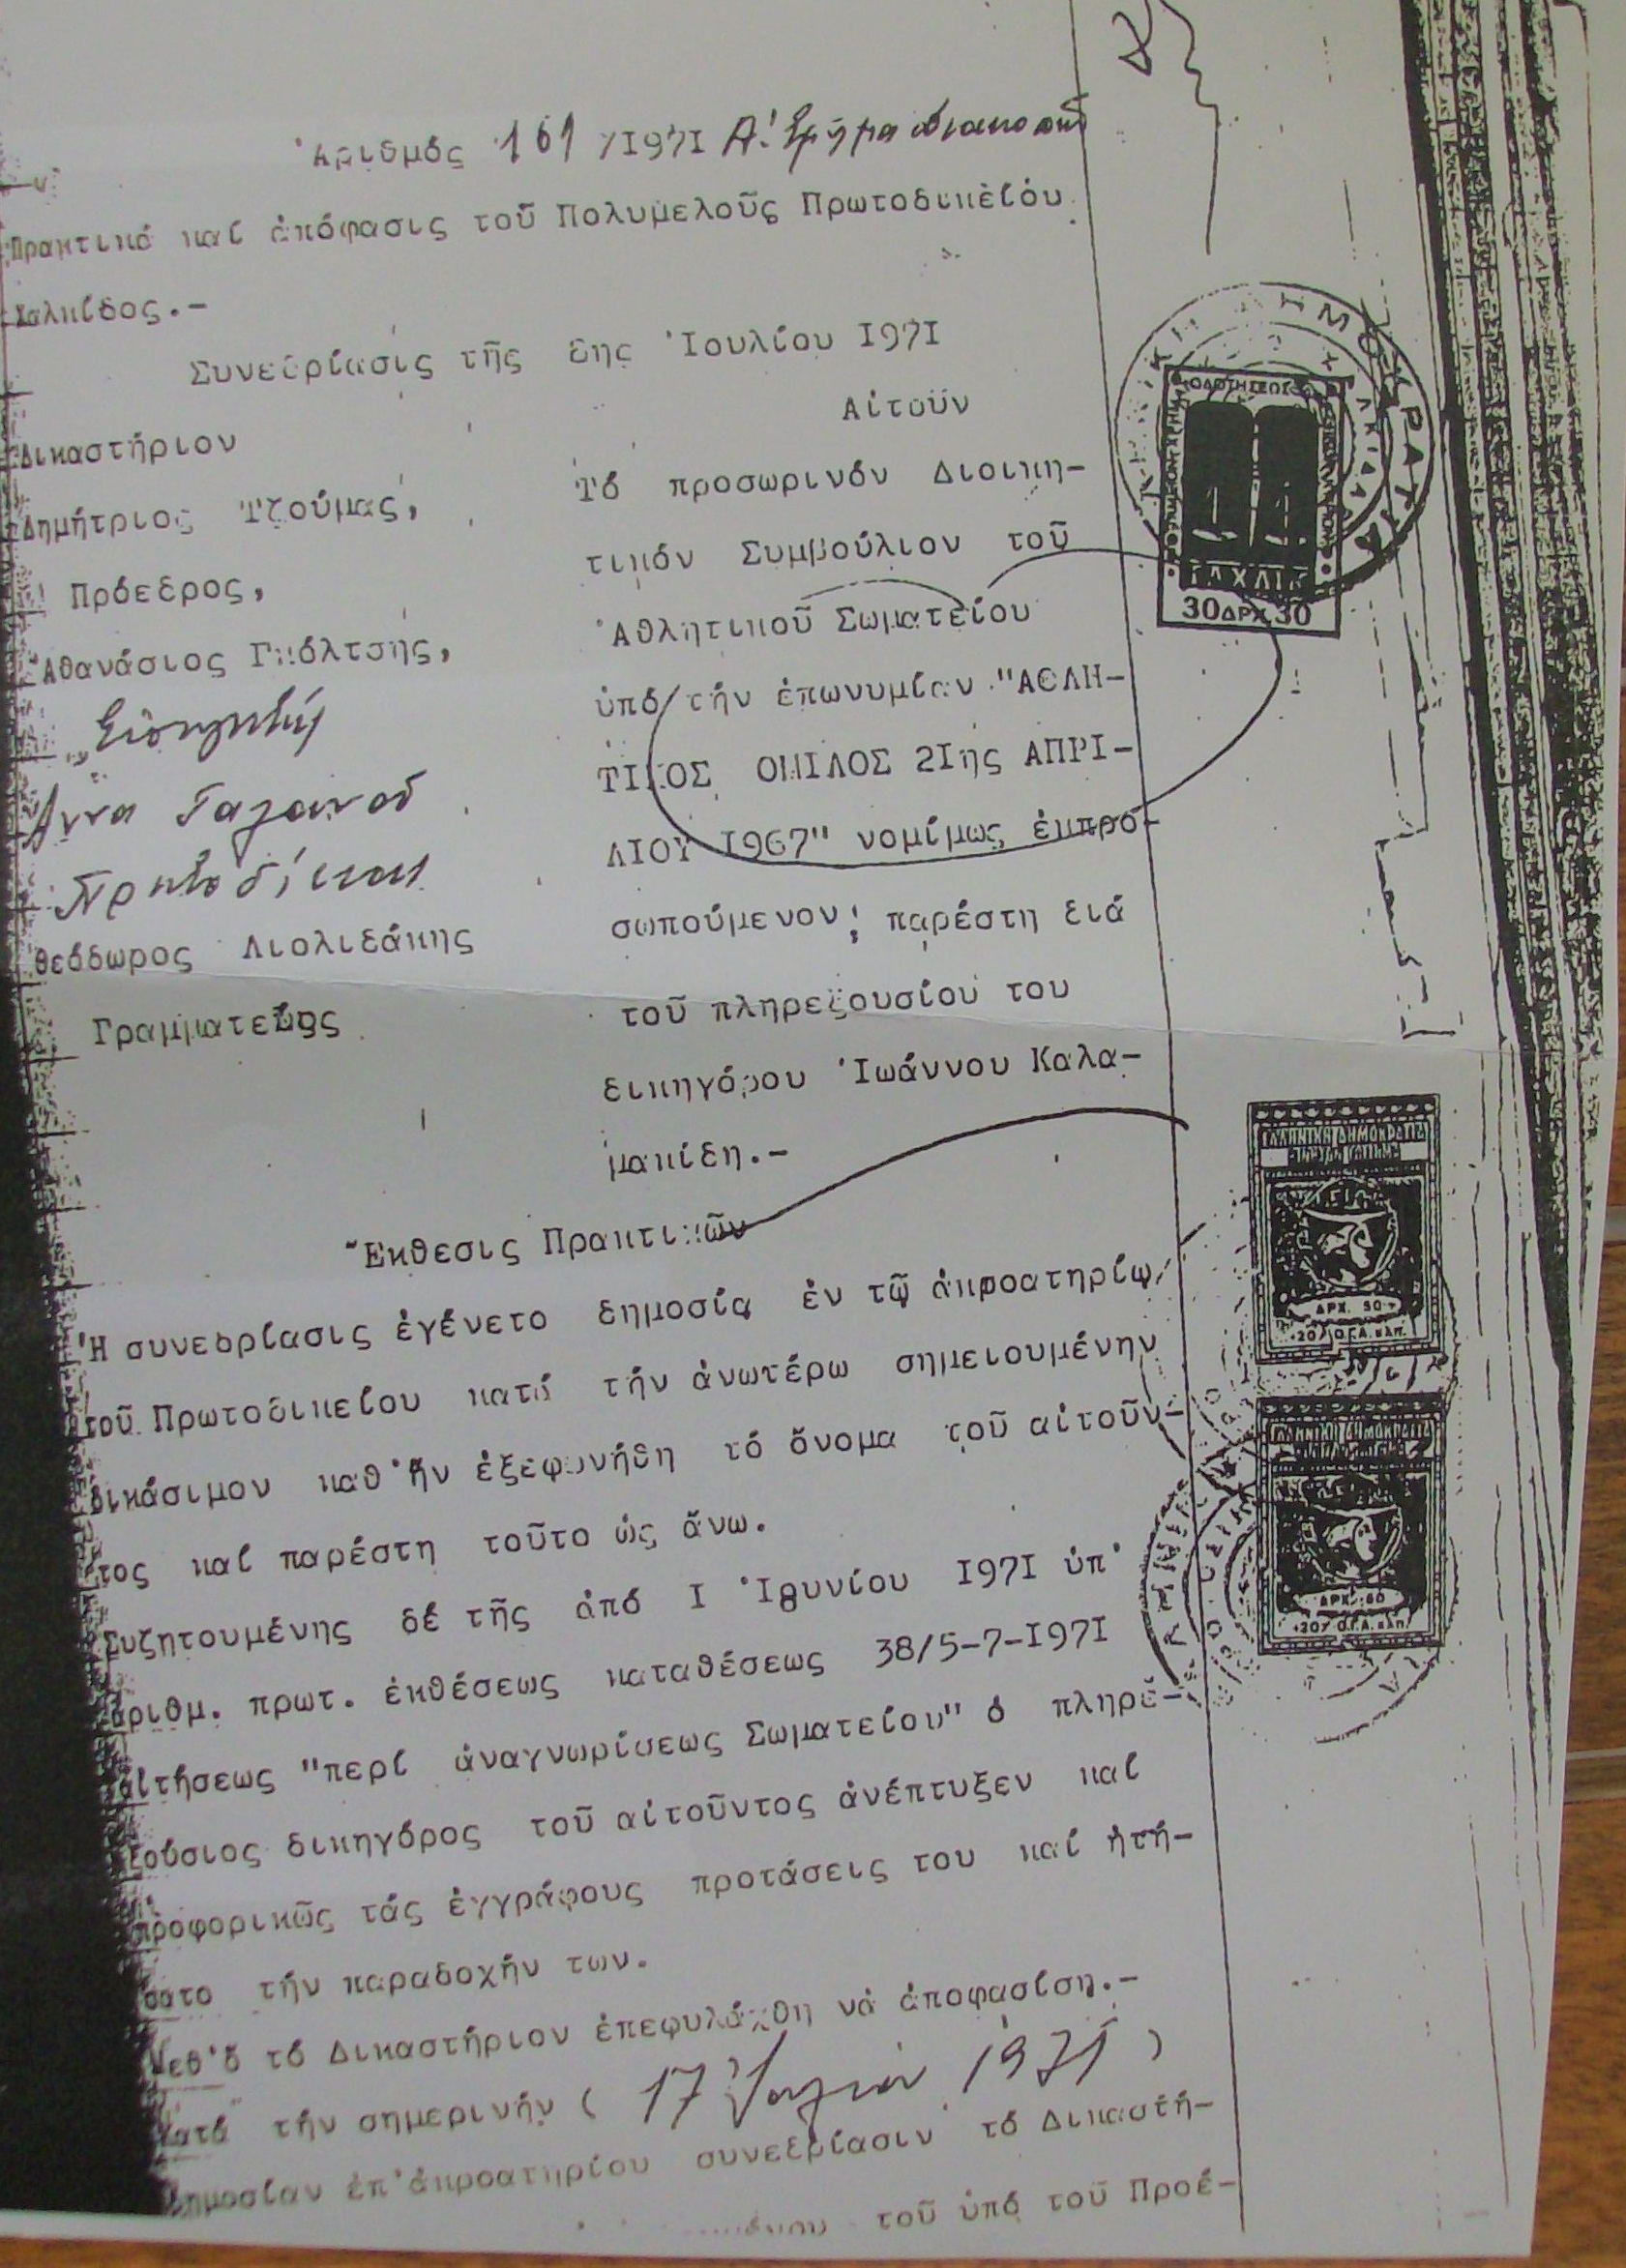 Ἀριθμός 161 /1971 Α! Τμῆμα διακοπῶν
Πρακτικά καί ἀπόφασις τοῦ Πολυμελοῦς Πρωτοδικείου
Χαλκίδος.-
Συνεδρίασις τῆς 6ης Ἰουλίου 1971
Δικαστήριον
Δημήτριος Τζούμας,
Πρόεδρος,
Ἀθανάσιος Γκόλτσης,
Εἰσηγητής
Ἄννα
Πρωτοδίκαι
Θεόδωρος Λιολιδάκης
Γραμματεύς
Αἰτοῦν
Τό προσωρινόν Διοικη-
τικόν Συμβούλιον τοῦ
Ἀθλητικοῦ Σωματείου
ὑπό τήν ἐπωνυμίαν "ΑΘΛΗ-
ΤΙΚΟΣ ΟΜΙΛΟΣ 21ης ΑΠΡΙ-
ΛΙΟΥ 1967" νομίμως ἐκπρο-
σωπούμενον; παρέστη διά
τοῦ πληρεξουσίου του
δικηγόρου Ἰωάννου Καλα-
μακίδη.-
Ἔκθεσις Πρακτικῶν
Ἡ συνεδρίασις ἐγένετο δημοσίᾳ ἐν τῷ ἀκροατηρίῳ
τοῦ Πρωτοδικείου κατά τήν ἀνωτέρω σημειουμένην
δικάσιμον καθ'ἥν ἐξεφωνήθη τό ὄνομα τοῦ αἰτοῦν-
τος καί παρέστη τοῦτο ὡς ἄνω.
Συζητουμένης δέ τῆς ἀπό 1 Ἰουνίου 1971 ὑπ'
ἀριθμ. πρωτ. ἐκθέσεως καταθέσεως 38/5-7-1971
αἰτήσεως "περί ἀναγνωρίσεως Σωματείου" ὁ πληρε-
ξούσιος δικηγόρος τοῦ αἰτοῦντος ἀνέπτυξεν καί
προφορικῶς τάς ἐγγράφους προτάσεις του καί ᾐτή-
σατο τήν παραδοχήν των.
Μεθ'ὅ τό Δικαστήριον ἐπεφυλάχθη νά ἀποφασίσῃ.-
Κατά τήν σημερινήν ( 17 Ἰουλίου 1971 )
δημοσίαν ἐπ'ἀκροατηρίου συνεδρίασιν τό Δικαστή-
τοῦ ὑπό τοῦ Προέ-
30 ΔΡΧ. 30
ΕΛΛΗΝΙΚΗ ΔΗΜΟΚΡΑΤΙΑ
ΔΡΧ. 50
+20% Ο.Γ.Α. κλπ.
ΕΛΛΗΝΙΚΗ ΔΗΜΟΚΡΑΤΙΑ
ΔΡΧ. 50
+20% Ο.Γ.Α. κλπ.